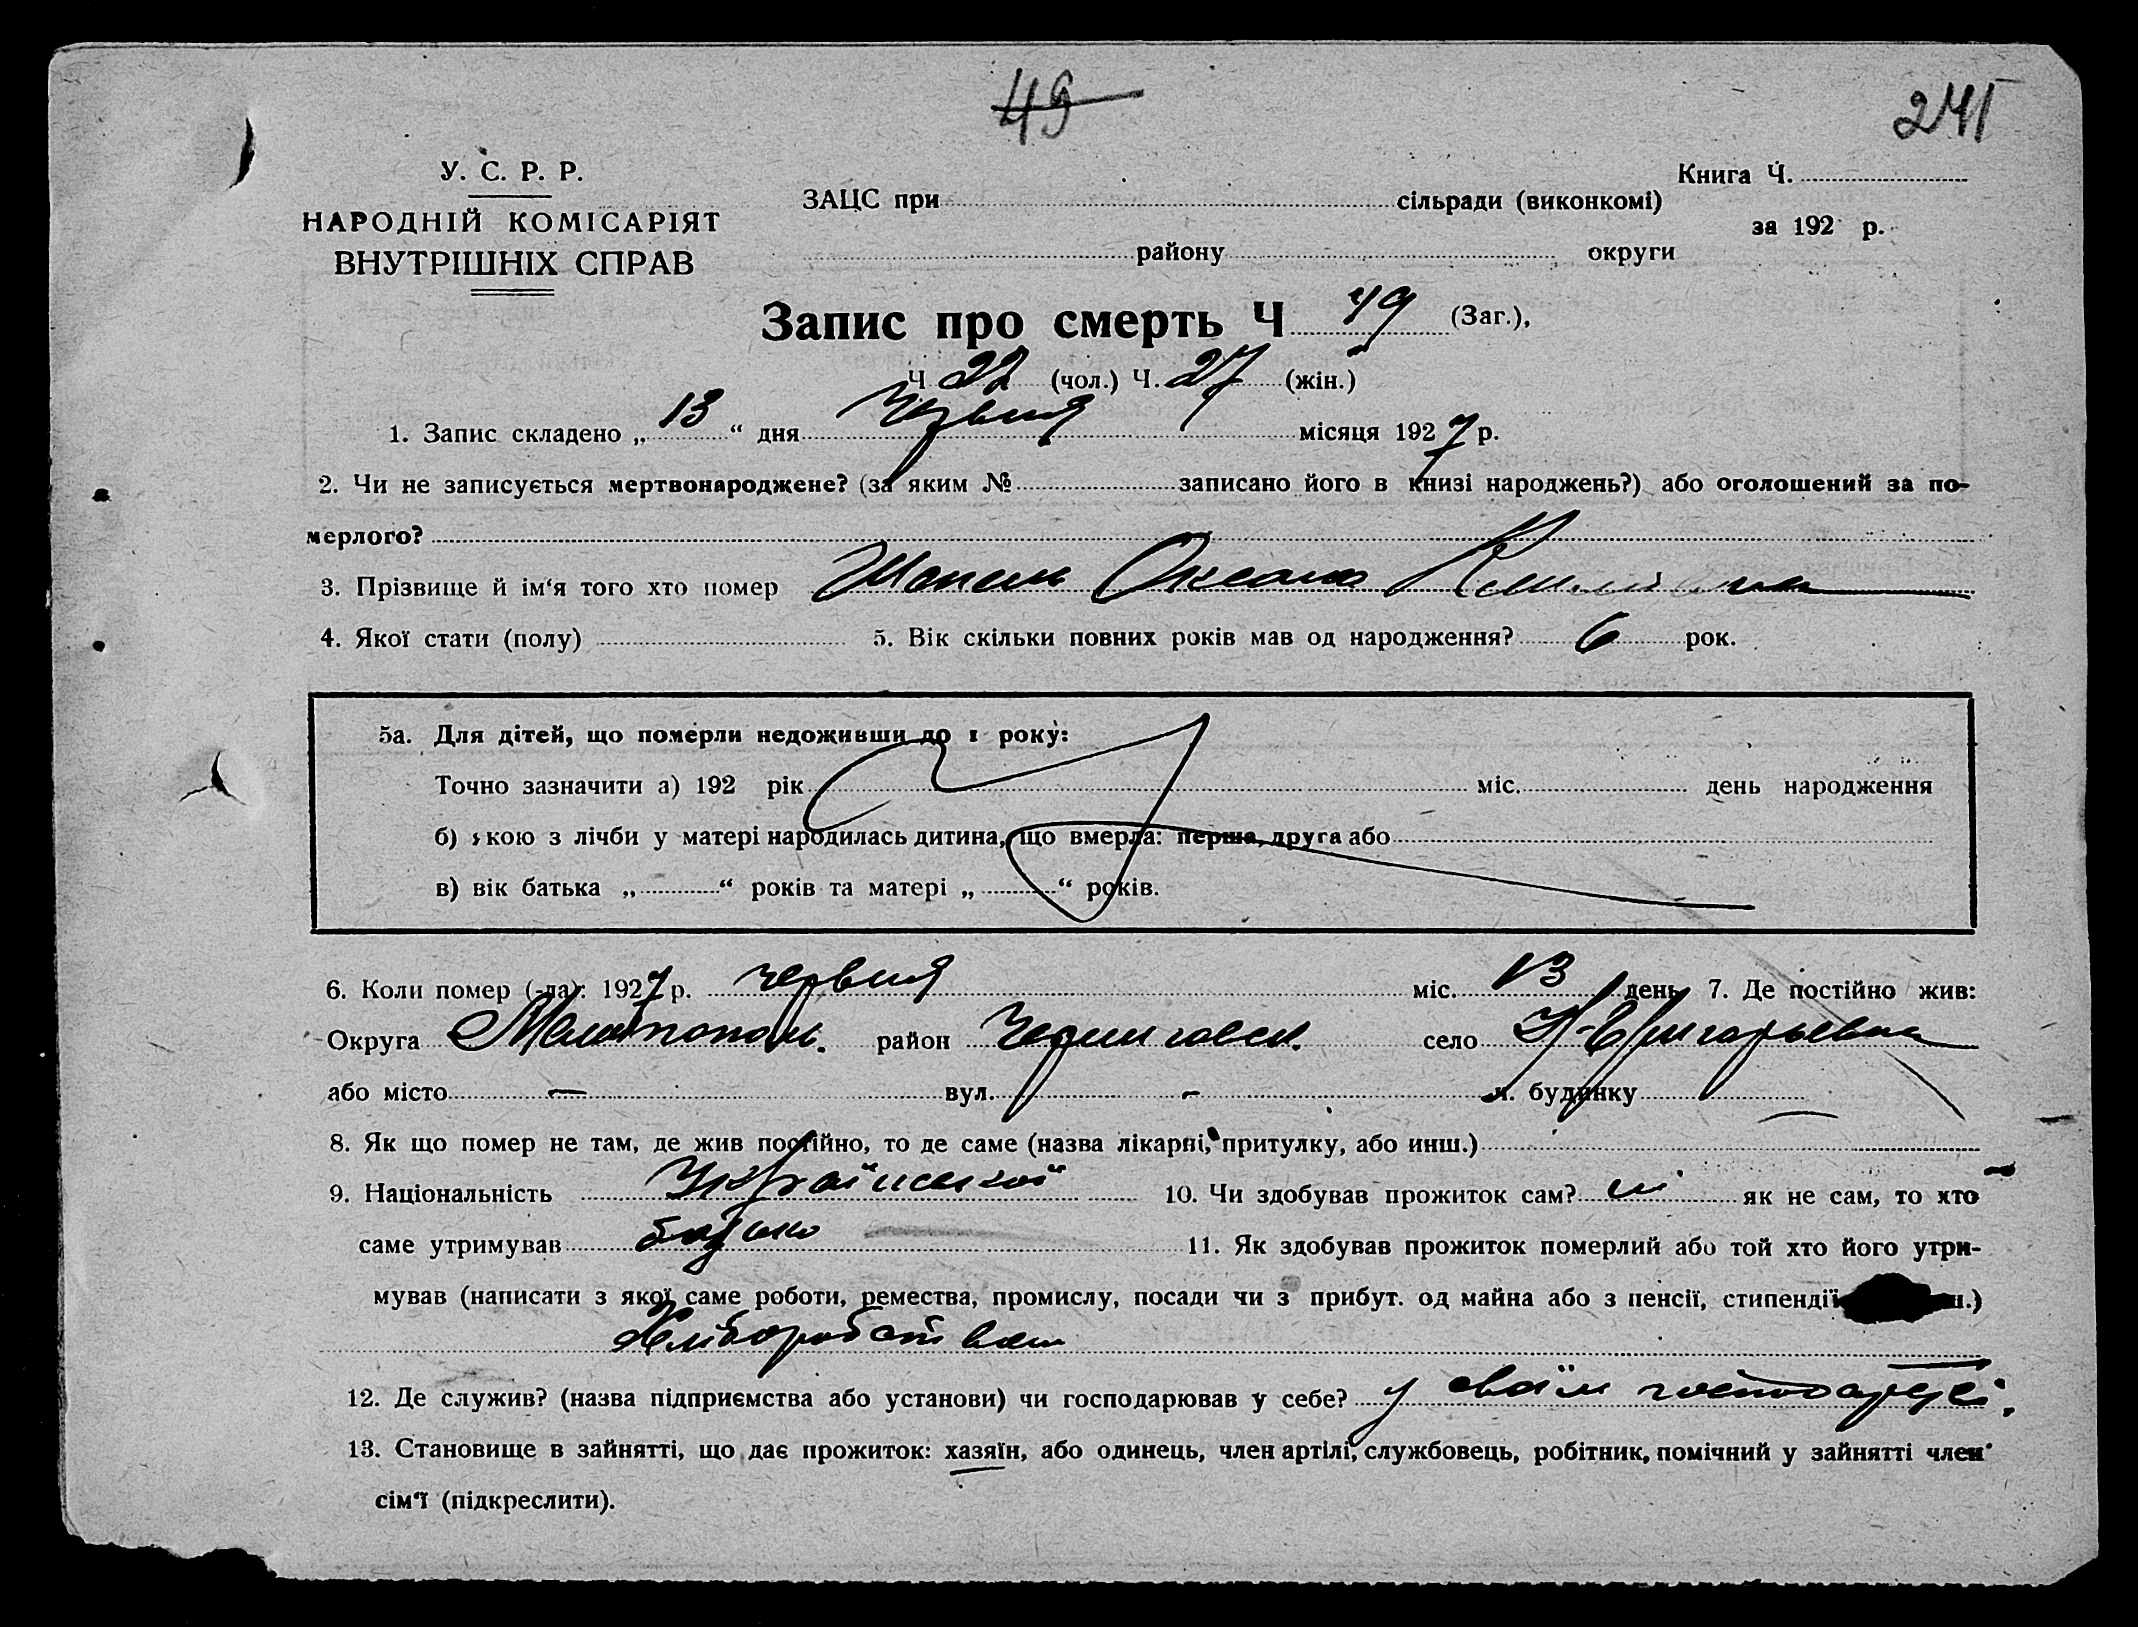 49
241
У. С. Р. Р.
НАРОДНІЙ КОМІСАРІЯТ
ВНУТРІШНІХ СПРАВ
ЗАЦС при сільради (виконкомі)
Книга Ч.
за 192 р.
району округи
Запис про смерть Ч 49 (Заг.),
Ч 22 (чол.) Ч. 27 (жін.)
1. Запис складено „ 13 “ дня Червня місяця 1927 р.
2. Чи не записується мертвонароджене? (за яким № записано його в книзі народжень?) або оголошений за по-
мерлого?
3. Прізвище й ім‘я того хто помер Оксана
4. Якої стати (полу) 5. Вік скільки повних років мав од народження? 6 рок.
5а. Для дітей, що померли недоживши до 1 року:
Точно зазначити а) 192 рік міс. день народження
б) якою з лічби у матері народилась дитина, що вмерла: перша, друга або
в) вік батька „ “ років та матері „ “ років.
6. Коли помер (-ла): 1927 р. червня міс. 13 день 7. Де постійно жив:
Округа Мелітопол. район Черниговск. село Н-Григорьевка
або місто — вул. - ч. будинку
8. Як що помер не там, де жив постійно, то де саме (назва лікарні, притулку, або инш.)
9. Національність Української 10. Чи здобував прожиток сам? ні як не сам, то хто
саме утримував батько 11. Як здобував прожиток померлий або той хто його утри-
мував (написати з якої саме роботи, ремества, промислу, посади чи з прибут. од майна або з пенсії, стипендії
Хліборобством
12. Де служив? (назва підприємства або установи) чи господарював у себе? у своїм господарстві.
13. Становище в зайнятті, що дає прожиток: хазяїн, або одинець, член артілі, службовець, робітник, помічний у зайнятті член
сім‘ї (підкреслити).